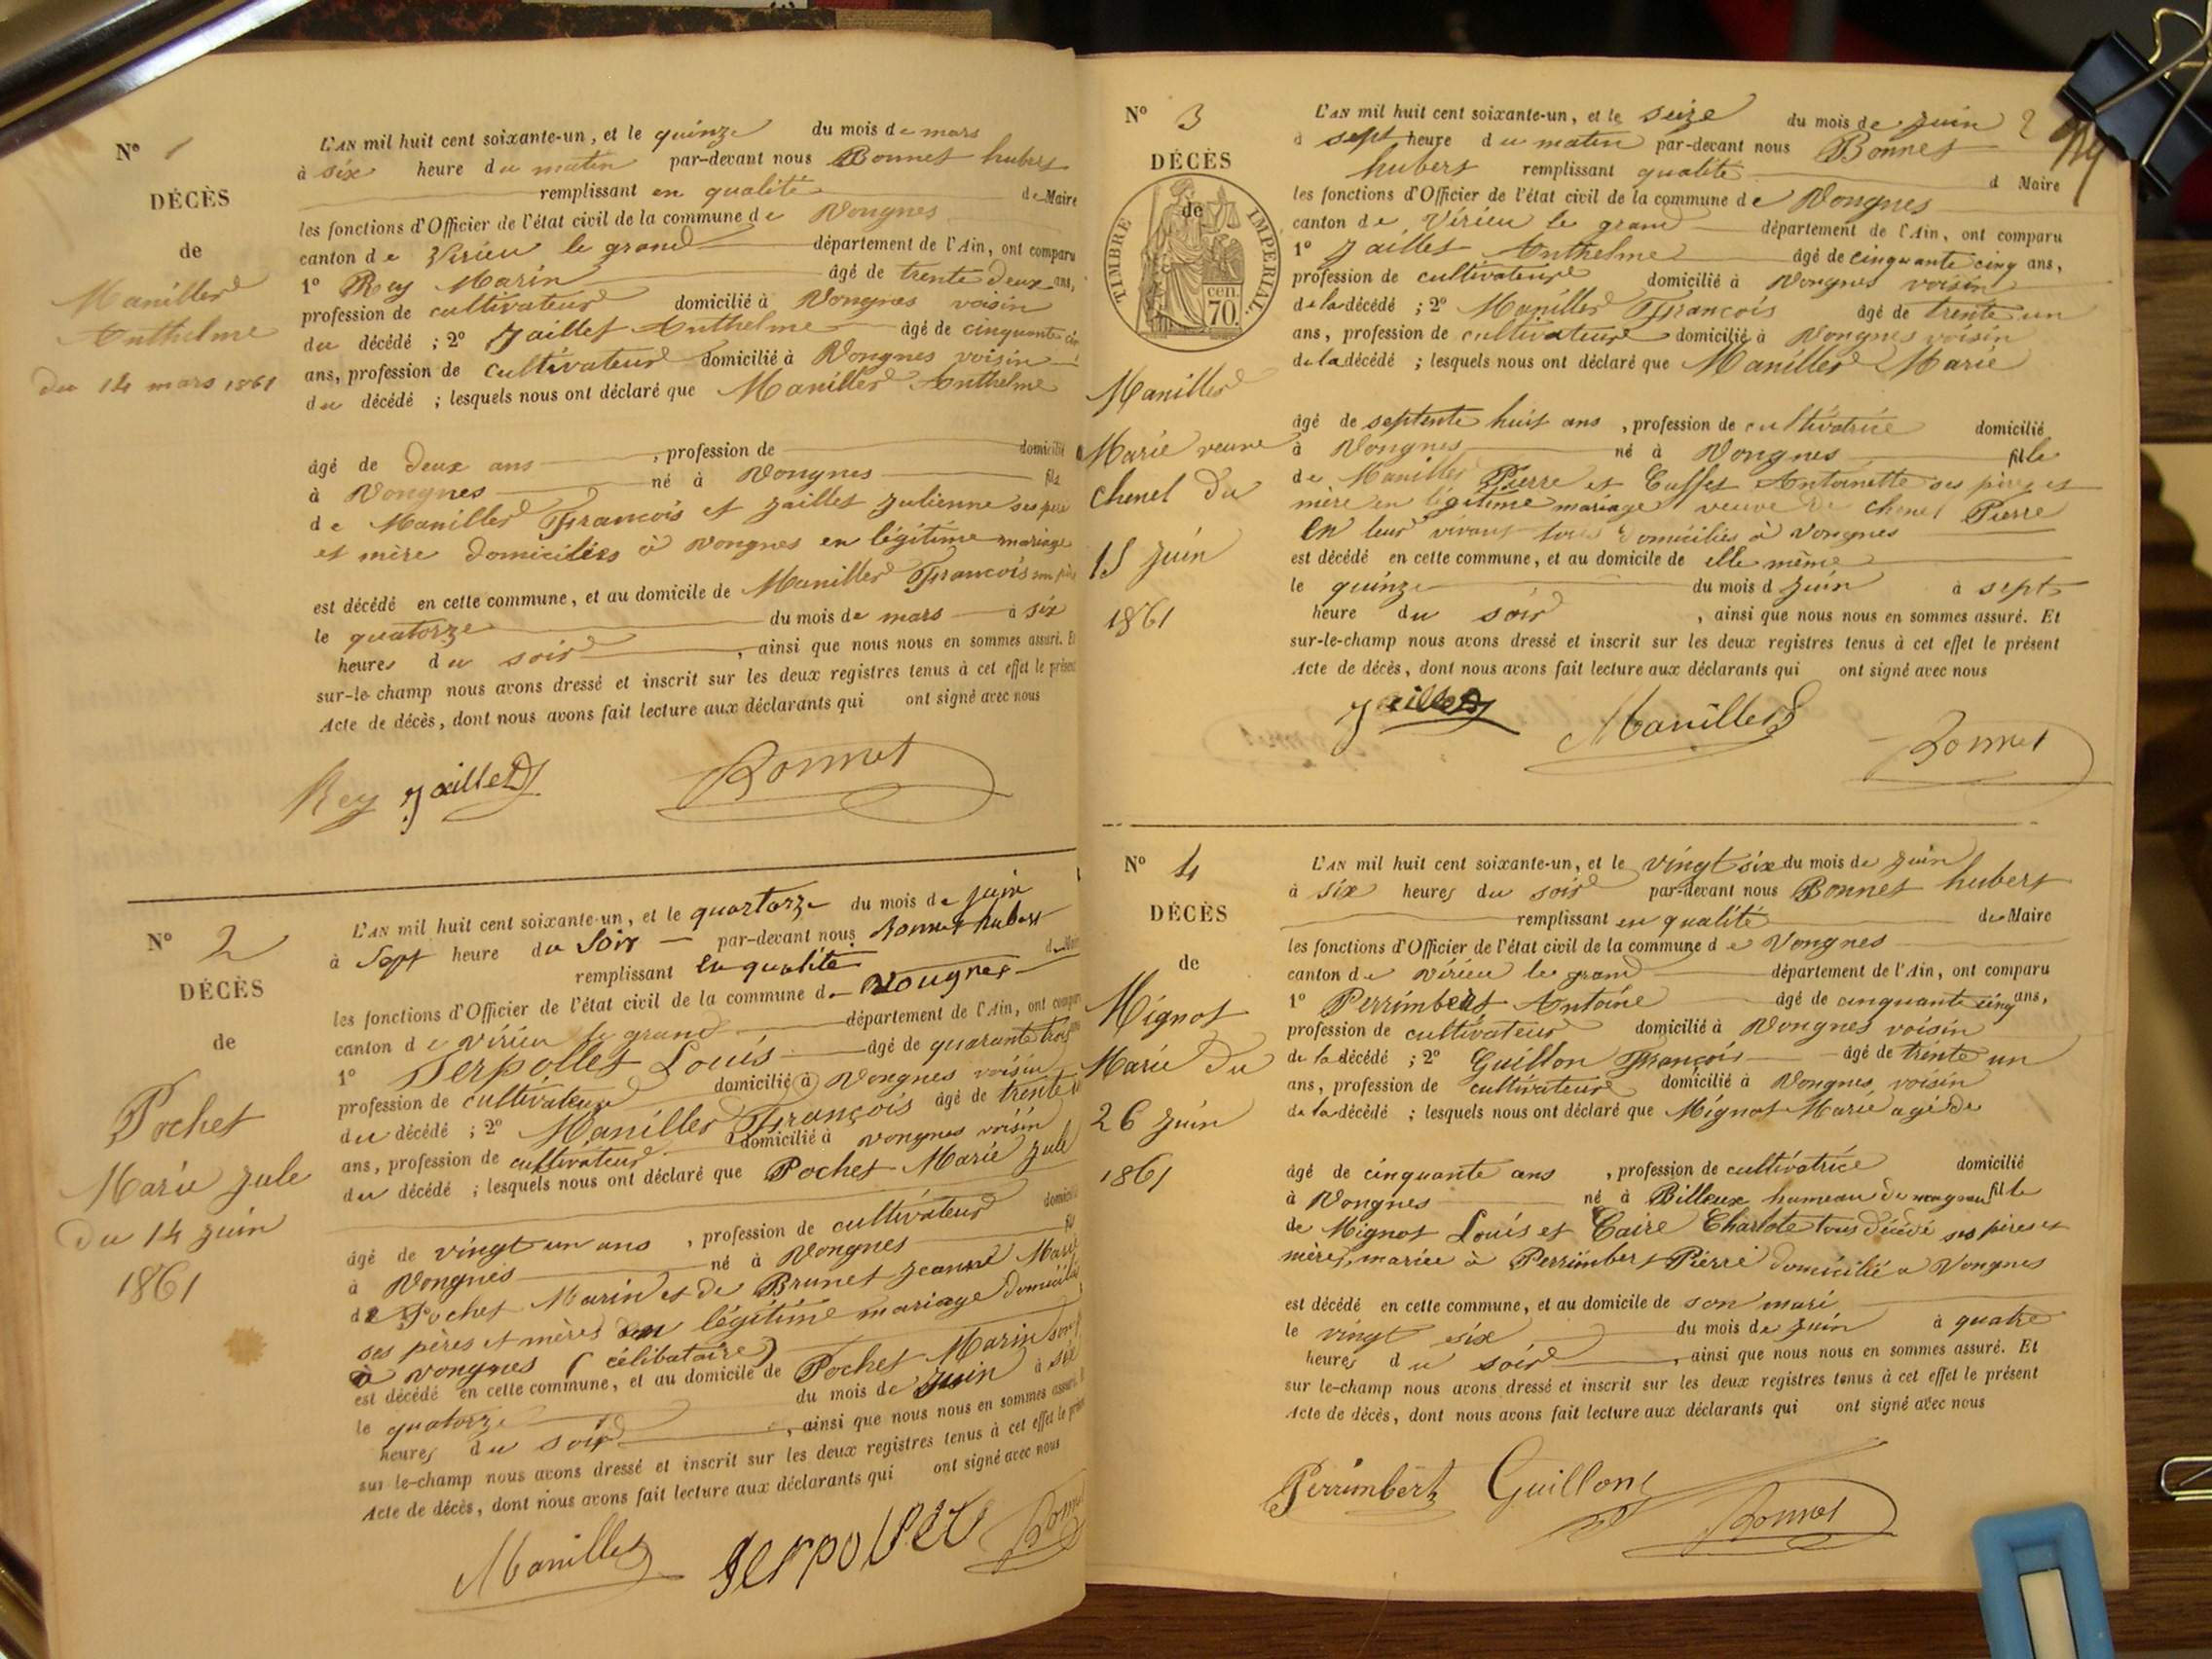 Nº 1
DÉCÈS
de
Maniller
Anthelme
du 14 mars 1861
L'AN mil huit cent soixante-un, et le quinze du mois de mars
à six heure du matin par-devant nous Bonnet hubert
remplissant en qualité de Maire
les fonctions d'Officier de l'état civil de la commune de Vongnes
canton de Virieu le grand département de l'Ain, ont comparu
1º Rey Marin âgé de trente deux ans,
profession de cultivateur domicilié à Vongnes voisin
du décédé ; 2º Jaillet Anthelme âgé de cinquante
ans, profession de cultivateur domicilié à Vongnes voisin
du décédé ; lesquels nous ont déclaré que Maniller Anthelme
âgé de deux ans , profession de domicilié
à Vongnes né à Vongnes fils
de Maniller François et Jaillet Julienne ses père
et mère domiciliés à Vongnes en légitime mariage
est décédé en cette commune, et au domicile de Maniller François
le quatorze du mois de mars à six
heures du soir , ainsi que nous nous en sommes assuré. Et
sur-le-champ nous avons dressé et inscrit sur les deux registres tenus à cet effet le présent
Acte de décès, dont nous avons fait lecture aux déclarants qui ont signé avec nous
Rey Jaillet Bonnet
Nº 2
DÉCÈS
de
Pochet
Marie Jule
du 14 juin
1861
L'AN mil huit cent soixante-un, et le quartorze du mois de juin
à Sept heure du Soir par-devant nous Bonnet hubert
remplissant en qualité de Maire
les fonctions d'Officier de l'état civil de la commune de Vougnes
canton de virieu le grand département de l'Ain, ont comparu
1º Serpollet Louis âgé de quarante trois
profession de cultivateur domicilié à Vongnes voisin
du décédé ; 2º Maniller François âgé de trente
ans, profession de cultivateur domicilié à vongnes voisin
du décédé ; lesquels nous ont déclaré que Pochet Marie Jule
domicilié
âgé de vingt un ans , profession de cultivateur
à Vongnes né à Vongnes
de Pochet Marin et de Brunet Jeanne Marie
ses pères et mères en légitime mariage domicilié
à vongnes (célibataire)
est décédé en cette commune, et au domicile de Pochet Marin son
le quatorze du mois de juin à six
heures du soir , ainsi que nous nous en sommes assuré.
sur-le-champ nous avons dressé et inscrit sur les deux registres tenus à cet effet le présent
Acte de décès, dont nous avons fait lecture aux déclarants qui ont signé avec nous
Maniller Serpollet Bonnet
Nº 3
DÉCÈS
de
TIMBRE IMPERIAL.
cen.
70.
Maniller
Marie veuve
chenel du
15 juin
1861
L'AN mil huit cent soixante-un, et le seize du mois de juin 2
à sept heure du matin par-devant nous Bonnet
hubert remplissant qualité d Maire
les fonctions d'Officier de l'état civil de la commune de Vongnes
canton de Virieu le grand département de l'Ain, ont comparu
1º Jaillet Anthelme âgé de cinquante cinq ans,
profession de cultivateur domicilié à Vongnes voisin
de la décédé ; 2º Maniller François âgé de trente un
ans, profession de cultivateur domicilié à Vongnes voisin
de la décédé ; lesquels nous ont déclaré que Maniller Marie
âgé de septente huit ans , profession de cultivatrice domicilié
à Vongnes né à Vongnes fille
de Maniller Pierre et Cusset Antoinette ses père et
mère en légitime mariage veuve de chenel Pierre
en leur vivant tous domiciliés à Vongnes
est décédé en cette commune, et au domicile de elle même
le quinze du mois d juin à sept
heure du soir , ainsi que nous nous en sommes assuré. Et
sur-le-champ nous avons dressé et inscrit sur les deux registres tenus à cet effet le présent
Acte de décès, dont nous avons fait lecture aux déclarants qui ont signé avec nous
Jaillet Maniller Bonnet
Nº 4
DÉCÈS
de
Mignot
Marie du
26 juin
1861
L'AN mil huit cent soixante-un, et le vingt six du mois de juin
à six heures du soir par-devant nous Bonnet hubert
remplissant en qualité de Maire
les fonctions d'Officier de l'état civil de la commune de Vongnes
canton de virieu le grand département de l'Ain, ont comparu
1º Perrimbert Antoine âgé de cinquante cinq ans,
profession de cultivateur domicilié à Vongnes voisin
de la décédé ; 2º Guillon François âgé de trente un
ans, profession de cultivateur domicilié à Vongnes voisin
de la décédé ; lesquels nous ont déclaré que Mignot Marie agé de
âgé de cinquante ans , profession de cultivatrice domicilié
à Vongnes né à Billeux hameau de fille
de Mignot Louis et Caire Charlote tous décédé ses pères et
mères, mariée à Perrimbert Pierre domicilié à Vongnes
est décédé en cette commune, et au domicile de son mari
le vingt six du mois de juin à quatre
heures du soir , ainsi que nous nous en sommes assuré. Et
sur le-champ nous avons dressé et inscrit sur les deux registres tenus à cet effet le présent
Acte de décès, dont nous avons fait lecture aux déclarants qui ont signé avec nous
Perrimbert Guillon Bonnet